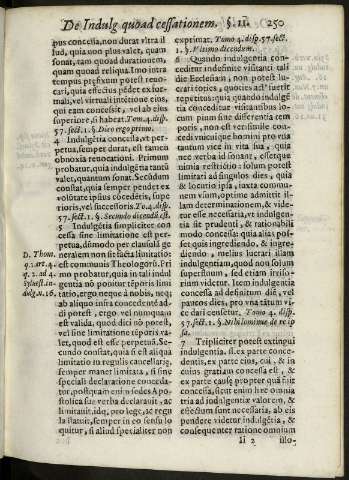 De Indulg quoad cessationem. §. 11. 250
pus concessa, non durat vltra il
lud, quia non plus valet, quam
sonat, tam quoad durationem,
quam quoad reliqua. Imo intra
tempus præfixum potest reuo-
cari, quia effectus pẽdet ex for-
mali, vel virtuali intẽtione eius,
qui eam concessit, vel ab eius
superiore, si habeat. Tom. 4. disp.
57. sect. 1. §. Dico ergo primo.
4 Indulgẽtia concessa, vt per-
petua, semper durat, est tamen
obnoxia reuocationi. Primum
probatur, quia indulgẽtia tantũ
valet, quantum sonat. Secũdum
constat, quia semper pendet ex
voluntate ipsius cõcedẽtis, supe-
rioris, vel successoris. To. 4. disp.
57. sect. 1. §. Secundo dicendũ est.
5 Indulgẽtia simpliciter con
cessa sine limitatione est per-
petua, dũmodo per clausulã ge
neralem non sit facta limitatio:
est communis Theologorũ. Pri
mo probatur, quia in tali indul
gentia nõ ponitur tẽporis limi
tatio, ergo neque à nobis, neq;
ab aliquo infra concedentẽ ad-
di potest, ergo vel nunquam
est valida, quod dici nõ potest,
vel sine limitatione tẽporis va-
let, quod est esse perpetuã. Se-
cundo constat, quia si est aliqua
limitatio in regulis cancellariæ,
semper manet limitata, si sine
speciali declaratione conceda-
tur, postquam enim sedes Apo-
stolica sua verba declarauit, ac
limitauit, idq; pro lege, ac regu
la statuit, semper in eo sensu lo
quitur, si aliud specialiter non
D. Thom.
q. 2. art. 4.
q. 2. ad 4.
Syluest. in-
dulg. n. 16.
exprimat. Tomo 4. disp. 57. sect.
1. §. Vltimo dicendum.
6 Quando indulgentia con-
ceditur indefinitè visitanti tali
die Ecclesiam, non potest lu-
crari toties, quoties actus fuerit
repetitus: quia quando indulgẽ
tia conceditur visitantibus lo-
cum pium sine differentia tem
poris, non est verisimile con-
cedi vnicuique homini pro vna
tantum vice in vita sua, quia
nec verba id sonant, essetque
nimia restrictio: solum potest
limitari ad singulos dies, quia
& locutio ipsa, iuxta commu-
nem vsum, optimè admittit il-
lam determinationem, & vide-
tur esse necessaria, vt indulgen-
tia sit prudenti, & rationabili
modo concessa: quia aliàs pos-
set quis ingrediendo, & ingre-
diendo, melius lucrari illam
indulgentiam, quod non solum
superfluum, sed etiam irriso-
rium videtur. Item indulgentia
concessa ad definitum diẽ, vel
paucos dies, pro vna tãtum vi-
ce dari censetur. Tomo 4. disp.
57. sect. 1. §. Nihilominus de re ip
sa.
7 Tripliciter potest extingui
indulgentia, si ex parte conce-
dentis, ex parte eius, cui, & in
cuius gratiam concessa est, &
ex parte causæ propter quã fuit
concessa, sicut enim hæc omnia
tria ad indulgentiæ valorem, &
effectum sunt necessaria, ab eis
pendere videtur indulgentia, &
consequenter ratione omnium
Ii 2 illo-